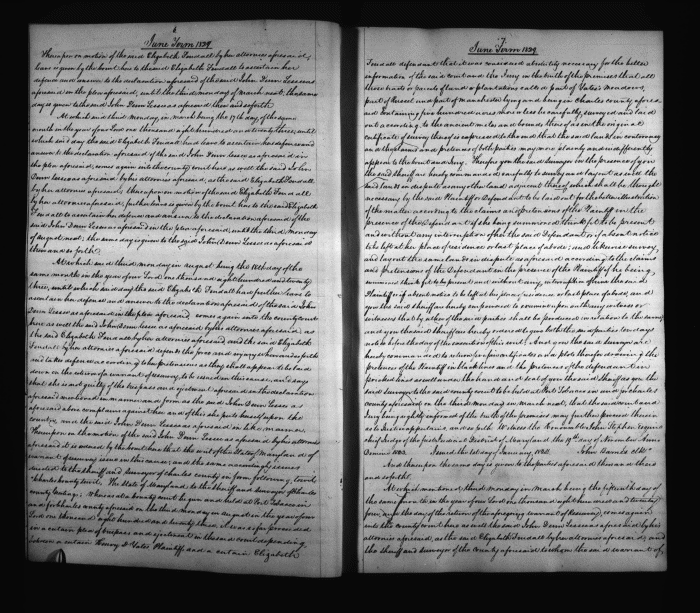 June Term 1829
Thereupon on motion of the said Elizabeth Tindall by her attornies aforesaid,
leave is given by the court here to the said Elizabeth Tindall to ascertain her
defence and answer to the declaration aforesaid of the said John Denn Lessee as
aforesaid in the plea aforesaid, until the third monday of march next; the same
day is given to the said John Denn Lessee as aforesaid then and so forth
At which said third Monday, in march being the 17th day of the same
month in the year of our lord one thousand eight hundred and twenty three, until
which said day the said Elizabeth Tindall had leave to ascertain her defence and
answer to the declaration aforesaid of the said John Denn Lessee as aforesaid in
the plea aforesaid, come again into the county court here as well the said John
Denn Lessee as aforesaid by his attornies aforesaid, as the said Elizabeth Tindall
by her attornies aforesaid; thereupon on motion of the said Elizabeth Tindall
by her attornies aforesaid, further leave is given by the court here to the said Elizabeth
Tindall to ascertain her defence and answer to the declaration aforesaid of the
said John Denn Lessee as aforesaid in the plea aforesaid, until the third monday
of august next; the same day is given to the said John Denn Lessee as aforesaid
then and so forth.
At which said third monday in august being the 18th day of the
same month in the year of our Lord one thousand eight hundred and twenty
three, until which said day the said Elizabeth Tindall had further leave to
ascertain her defence and answer to the declaration aforesaid of the said John
Denn Lessee as aforesaid in the plea aforesaid, comes again into the county court
here as well the said John Denn Lessee as aforesaid by his attornies aforesaid as
the said Elizabeth Tindall by her attornies aforesaid, and the said Elizabeth
Tindall by her attornies aforesaid defends the force and injury when and so forth
and takes defence according to her pretensions as they shall appear to be laid
down on the return of a warrant of resurvey, to be issued in this cause, and says
that she is not guilty of the trespass and ejectment aforesaid in the declaration
aforesaid mentioned in manner and form as the said John Denn Lessee as
aforesaid above complains against her and of this she puts herself upon the
country and the said John Denn Lessee as aforesaid in like manner.
Thereupon on the motion of the said John Denn Lessee as aforesaid by his attornies
aforesaid it is ordered by the court here that the writ of the State of Maryland of
warrant of resurvey issue in this cause; and the same accordingly issues
directed to the sheriff and surveyor of Charles county in form following, to wit
"Charles County to wit, The State of Maryland, to the Sheriff and Surveyor of Charles
county Greeting; Whereas at a County court begun and held at Port Tobacco in
and for Charles county aforesaid on the third monday in august in the year of our
Lord one thousand eight hundred and twenty three. It was so far proceeded
in a certain plea of trespass and ejectment in the said court depending
between a certain Henry D Yates Plaintiff and a certain Elizabeth
June Term 1829
Tindall defendant that it was considered absolutely necessary for the better
information of the said court and the Jury in the truth of the premises that all
those tracts or parcels of land or plantations called part of Yates's Meadows,
part of Resect and part of Manchester lying and being in Charles county aforesaid
and containing five hundred acres more or less be carefully surveyed and laid
out according to the ancient metes and bounds thereof and the original
certificate of survey thereof as expressed to the end that the said lands in controversy
and the claims and pretences of both parties may more clearly and indifferently
appear to the Court and Jury. Therefore you the said Surveyor in the presence of you
the said Sheriff are hereby commanded carefully to survey and layout as well the
said lands in dispute as any other land adjacent thereof which shall be thought
necessary by the said Plaintiff or Defendant to be laid out for the better illustration
of the matter according to the claims and pretensions of the Plaintiff in the
presence of the Defendant if she being summoned think fit to be present
and without any interruption of her the said Defendant, or if absent notice
to be left at her place of residence or last place of abode; and likewise survey,
and layout the same lands in dispute as aforesaid according to the claims
and pretensions of the Defendant in the presence of the Plaintiff if he being,
summoned think fit to be present and without any, interruption of him the said
Plaintiff or if absent notice to be left at his place of residence or last place of abode, and
you the said sheriff are hereby commanded to summon and swear all evidences or
witnesses that by either of the said parties shall be produced in relation to the survey
and you the said Sheriff are hereby ordered to give both the said parties ten days
notice before the day of the execution of this writ. And you the said Surveyor are
hereby commanded to return fair certificates and a plot thereof describing the
pretences of the Plaintiff in black lines and the pretences of the defendant in
pricked lines as well under the hand and seal of you the said Sheriff as you the
said Surveyor to the said county court to be held at Port Tobacco in and for Charles
county aforesaid on the third Monday in March next, that the said court and
Jury being rightly informed of the truth of the premises may further proceed therein
as to Justice appertains, and so forth. Witness the Honorable John Stephen esquire
chief Judge of the first Judicial District of Maryland, the 19th day of November Anno
Domini 1823. Issued the 1st day of January, 1824. John Barnes Clk."
And thereupon the same day is given to the parties aforesaid then and there
and so forth.
At which mentioned third monday in march being the fifteenth day of
the same month in the year of our lord one thousand eight hundred and twenty
four, and the day of the return of the aforegoing warrant of Resurvey, comes again
into the county court here as well the said John Denn Lessee as aforesaid by his
attornies aforesaid, as the said Elizabeth Tindall by her attornies aforesaid; and
the Sheriff and surveyor of the county aforesaid to whom the said warrant of,